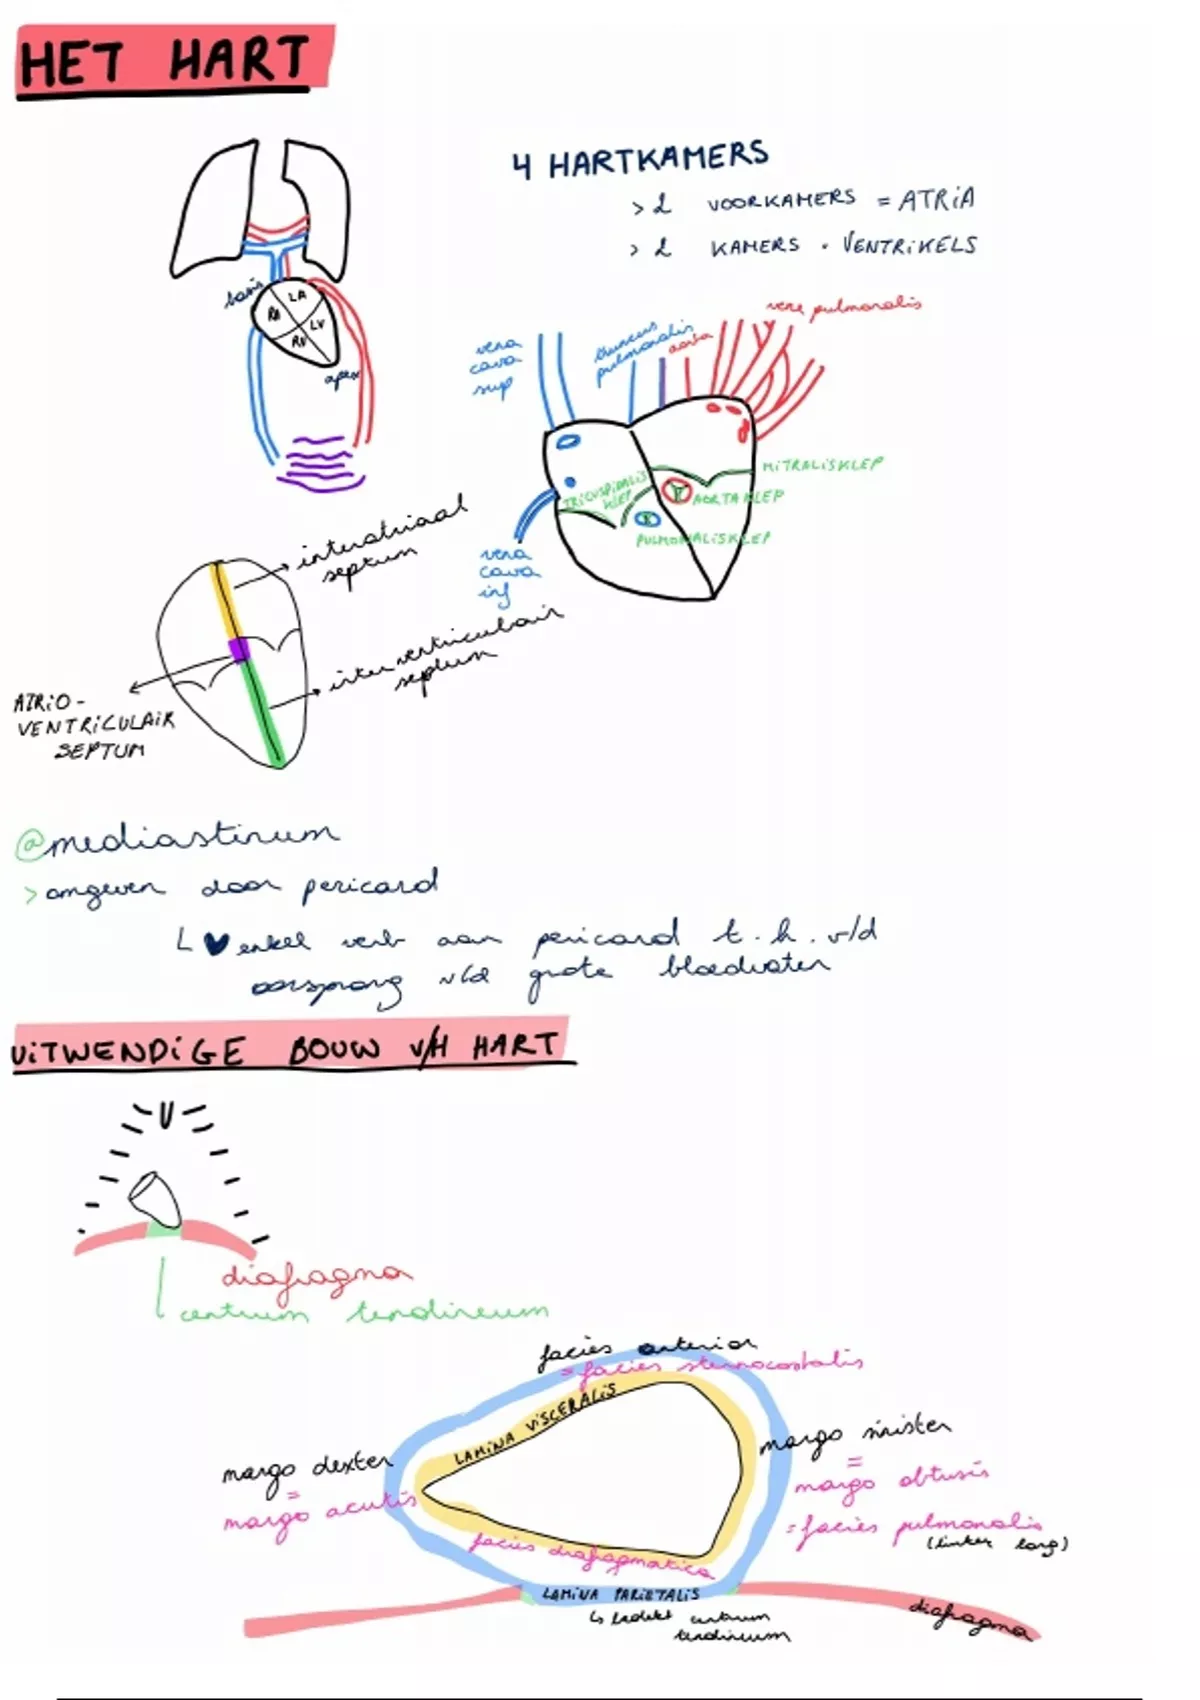 HET HART
4 HARTKAMERS
> 2 VOORKAMERS = ATRIA
> 2 KAMERS = VENTRIKELS
basis
RA
LA
LV
RV
apex
vena
cava
sup
truncus
pulmonalis
aorta
vene pulmonalis
MITRALISKLEP
TRICUSPIDALIS
KLEP
AORTAKLEP
PULMONALISKLEP
vena
cava
inf
interatriaal
septum
interventriculair
septum
ATRIO-
VENTRICULAIR
SEPTUM
@mediastinum
> omgeven door pericard
L ♥ enkel verb aan pericard t.h.v/d
oorsprong v/d grote bloedvaten
UITWENDIGE BOUW v/H HART
diafragma
centrum tendineum
facies anterior
= facies sternocostalis
LAMINA VISCERALIS
margo dexter
=
margo acutis
margo sinister
=
margo obtusis
= facies pulmonalis
(linker long)
facies diafragmatica
LAMINA PARIETALIS
↳ bedekt centrum
tendineum
diafragma